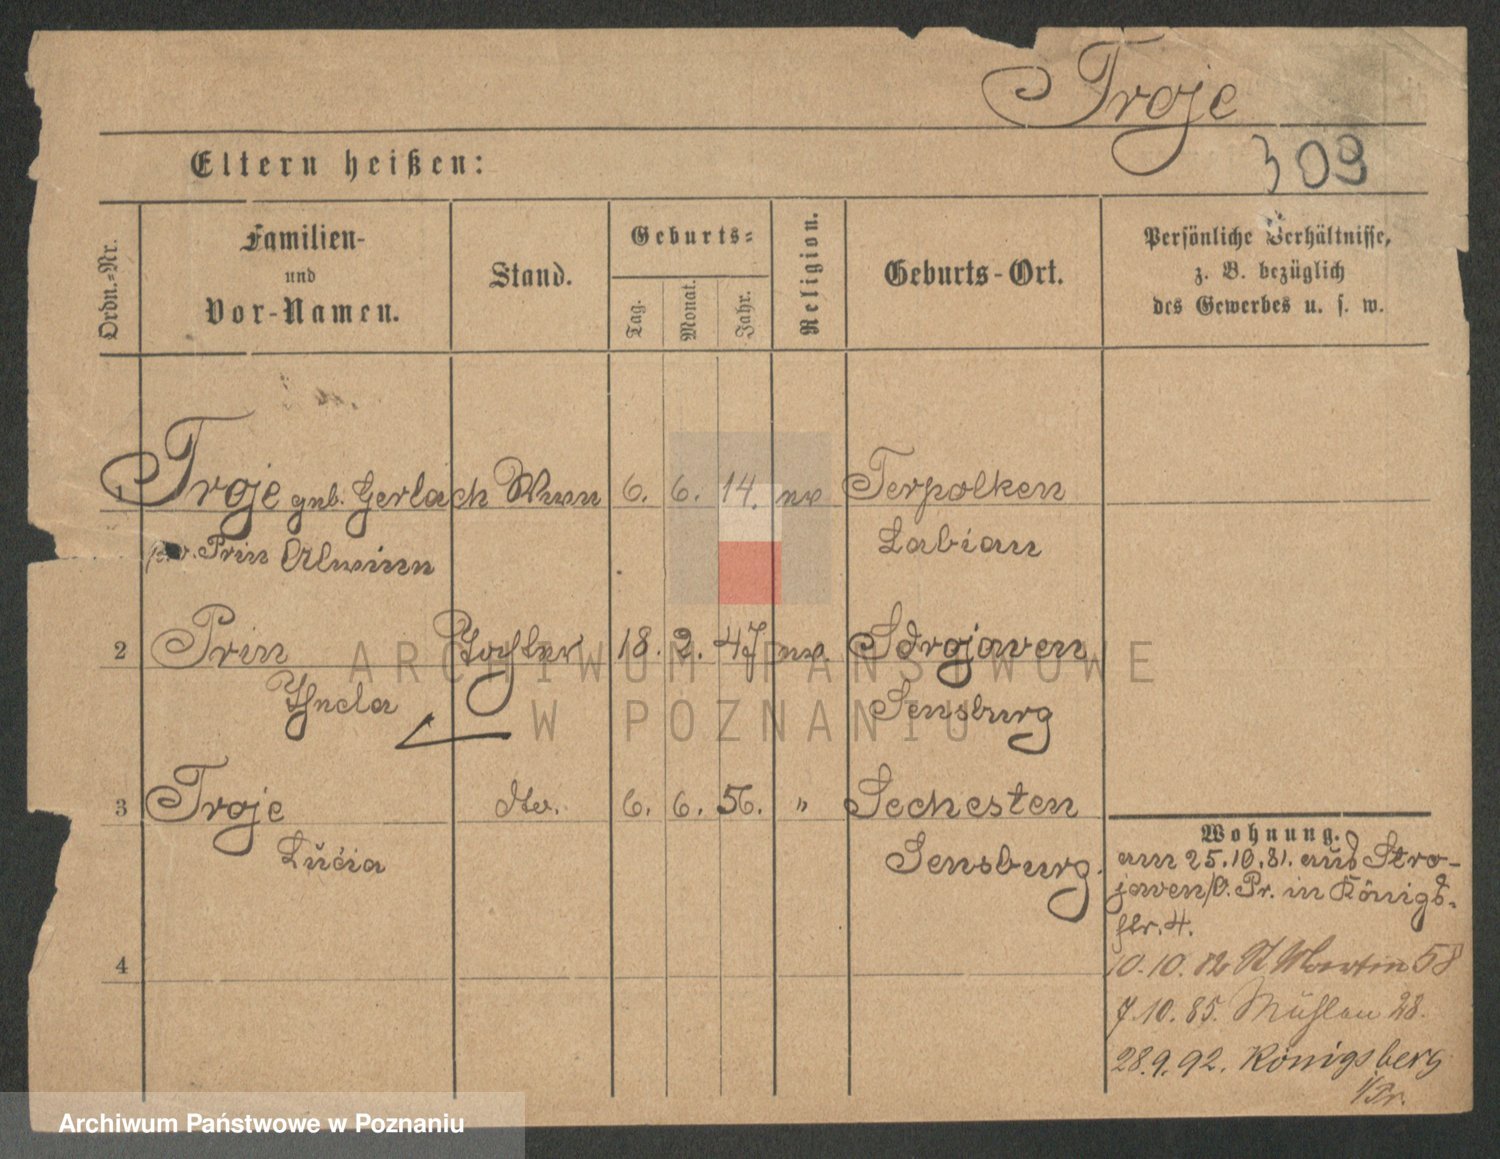 Troje
309
Eltern heißen:
Ordn.-Nr.
Familien-
und
Vor-Namen.
Stand.
Geburts-
Tag.
Monat.
Jahr.
Religion.
Geburts-Ort.
Persönliche Verhältnisse,
z. B. bezüglich
des Gewerbes u. s. w.
1 Troje geb. Gerlach Wwn 6. 6. 14. ev Terpolken
Prin Alwinn Labiau
2 Prin Tochter 18. 2. 47 ev. Sdrojaven
Thecla Sensburg
3 Troje dto. 6. 6. 56. " Sechesten
Lucia Sensburg.
4
Wohnung.
am 25.10.81. aus Stro-
javen/O. Pr. in Königs-
str. 4.
10.10.82 St Martin 58
7.10.85. Mühlen 28.
28.9.92. Königsberg
i/Pr.
ARCHIWUM PAŃSTWOWE
W POZNANIU
Archiwum Państwowe w Poznaniu